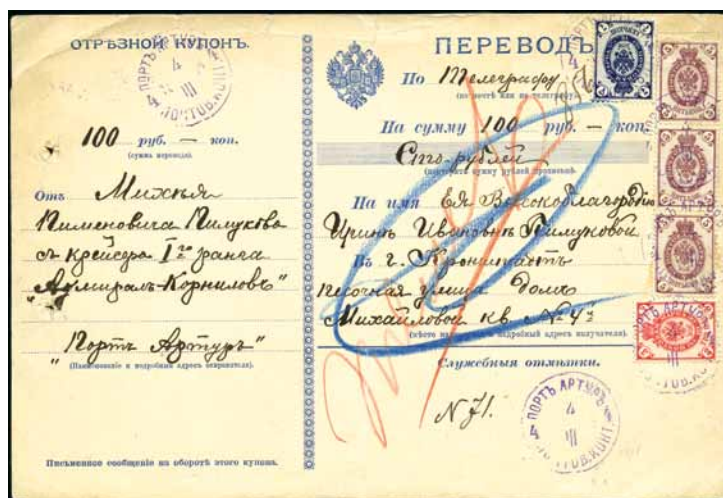 ОТРѢЗНОЙ КУПОНЪ.
ПОРТЪ АРТУРЪ
4
III
4 ПОЧТОВ. КОНТ.
100 руб. — коп.
(сумма перевода).
Отъ Михѣя
Пименовича Пилукова
съ крейсера I го ранга
"Адмиралъ-Корниловъ"
"Портъ Артуръ"
(Наименованіе и подробный адресъ отправителя).
Письменное сообщеніе на оборотѣ этого купона.
ПЕРЕВОДЪ
По Телеграфу
(по почтѣ или по телеграфу).
На сумму 100 руб. — коп.
Сто рублей
(повторить сумму рублей прописью).
На имя Ея Высокоблагородію
Иринѣ Ивановнѣ Пилуковой
Въ г. Кронштадтъ
песочная улица домъ
Михайловой кв. № 4й
(мѣсто назначенія и подробный адресъ получателя).
Служебныя отмѣтки.
N 71.
ПОРТЪ АРТУРЪ
4
III
4 ПОЧТОВ. КОНТ.